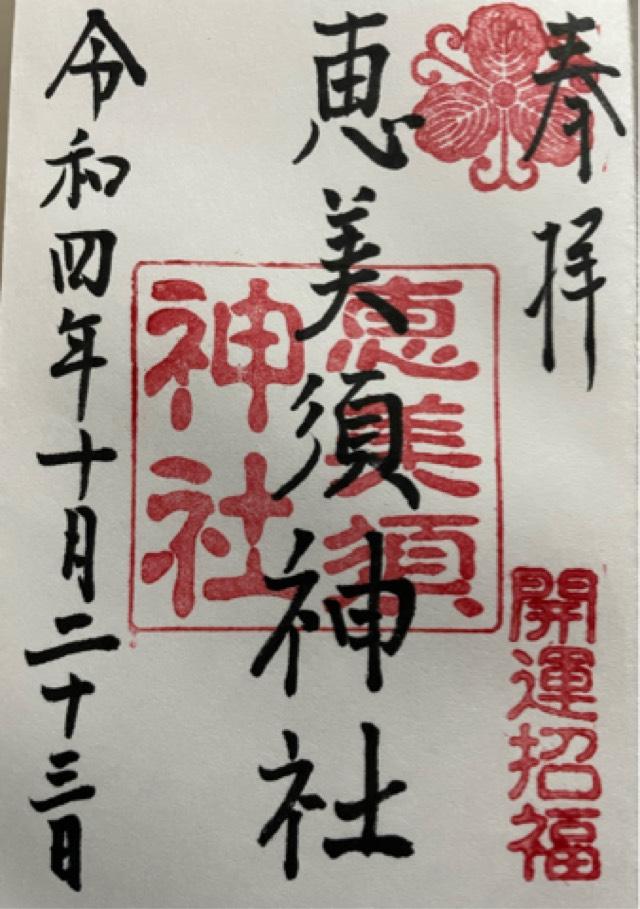 奉拝
開運招福
恵美須神社
恵美須
神社
令和四年十月二十三日